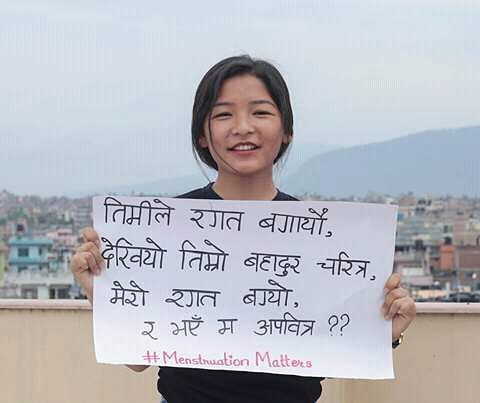 तिमीले रगत बगायौं,
देखियो तिम्रो बहादुर चरित्र,
मेरो रगत बग्यो,
र भएँ म अपवित्र ??
#Menstruation Matters